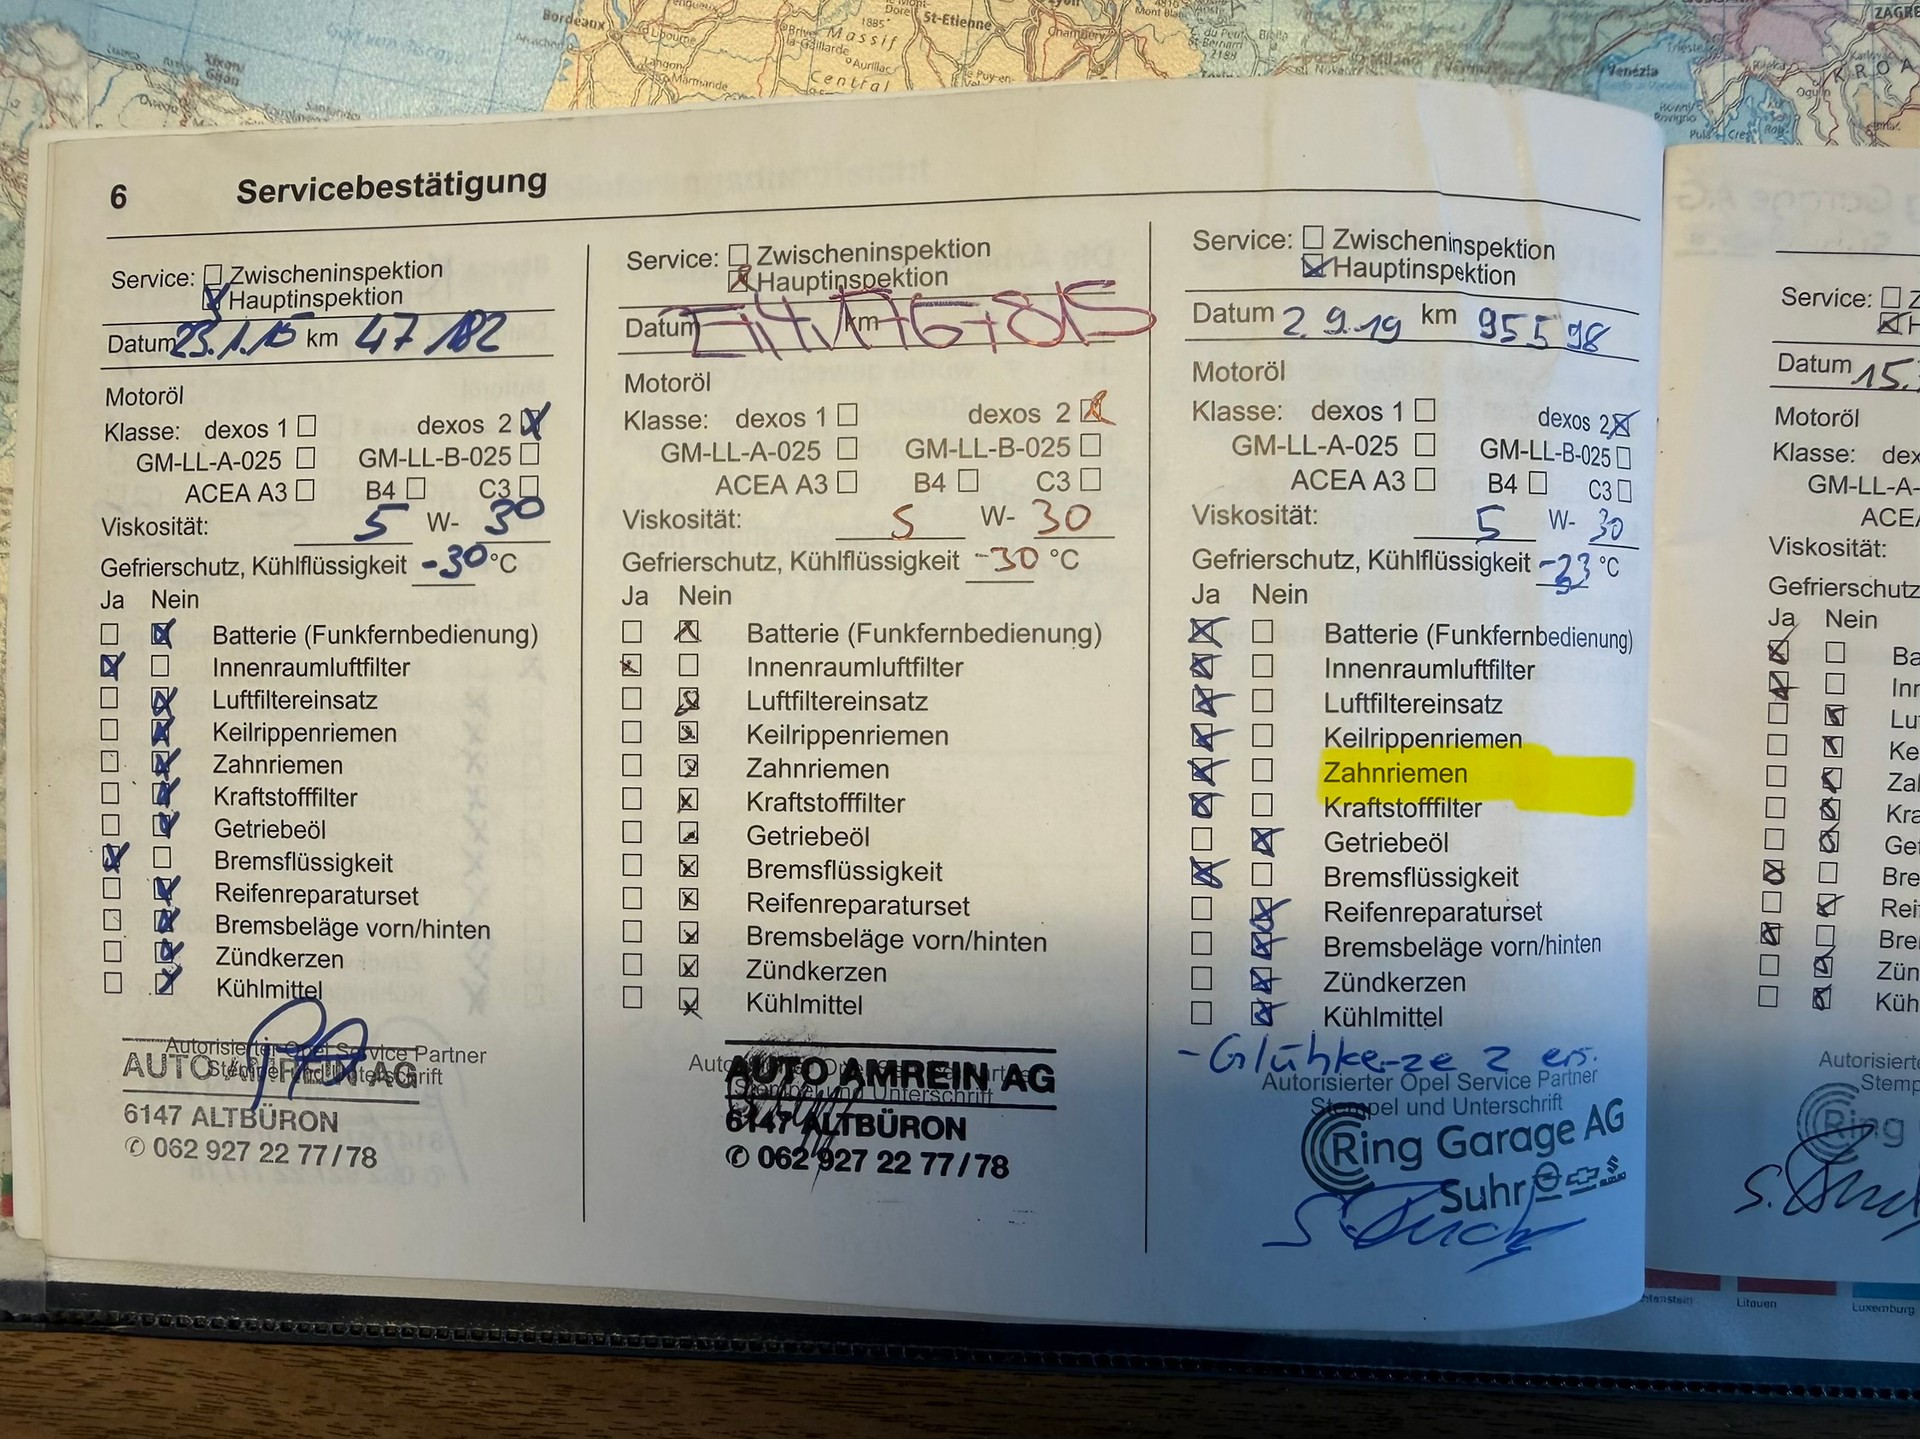 6 Servicebestätigung
Service: Zwischeninspektion
Hauptinspektion
Datum 23.1.15 km 47 182
Motoröl
Klasse: dexos 1 dexos 2
GM-LL-A-025 GM-LL-B-025
ACEA A3 B4 C3
Viskosität: 5 W- 30
Gefrierschutz, Kühlflüssigkeit -30 °C
Ja Nein
Batterie (Funkfernbedienung)
Innenraumluftfilter
Luftfiltereinsatz
Keilrippenriemen
Zahnriemen
Kraftstofffilter
Getriebeöl
Bremsflüssigkeit
Reifenreparaturset
Bremsbeläge vorn/hinten
Zündkerzen
Kühlmittel
Autorisierter Opel Service Partner
Stempel und Unterschrift
AUTO AMREIN AG
6147 ALTBÜRON
✆ 062 927 22 77/78
Service: Zwischeninspektion
Hauptinspektion
Datum km
Motoröl
Klasse: dexos 1 dexos 2
GM-LL-A-025 GM-LL-B-025
ACEA A3 B4 C3
Viskosität: 5 W- 30
Gefrierschutz, Kühlflüssigkeit -30 °C
Ja Nein
Batterie (Funkfernbedienung)
Innenraumluftfilter
Luftfiltereinsatz
Keilrippenriemen
Zahnriemen
Kraftstofffilter
Getriebeöl
Bremsflüssigkeit
Reifenreparaturset
Bremsbeläge vorn/hinten
Zündkerzen
Kühlmittel
AUTO AMREIN AG
Stempel und Unterschrift
6147 ALTBÜRON
✆ 062 927 22 77/78
Service: Zwischeninspektion
Hauptinspektion
Datum 2.9.19 km 95598
Motoröl
Klasse: dexos 1 dexos 2
GM-LL-A-025 GM-LL-B-025
ACEA A3 B4 C3
Viskosität: 5 W- 30
Gefrierschutz, Kühlflüssigkeit -23 °C
Ja Nein
Batterie (Funkfernbedienung)
Innenraumluftfilter
Luftfiltereinsatz
Keilrippenriemen
Zahnriemen
Kraftstofffilter
Getriebeöl
Bremsflüssigkeit
Reifenreparaturset
Bremsbeläge vorn/hinten
Zündkerzen
Kühlmittel
- Glühkerze 2 ers.
Autorisierter Opel Service Partner
Stempel und Unterschrift
Ring Garage AG
Suhr
Service: Z
H
Datum 15.
Motoröl
Klasse: dex
GM-LL-A-
ACEA
Viskosität:
Gefrierschutz
Ja Nein
Ba
Inn
Lu
Ke
Za
Kra
Get
Bre
Rei
Bre
Zün
Küh
Autorisierte
Stemp
Ring
Bordeaux
Libourne
Langon
Marmande
St-Etienne
Massif
Central
Aurillac
Chambéry
Venézia
Rovigno
Ogulin
ZAGRE
KROA
Litauen
Luxemburg